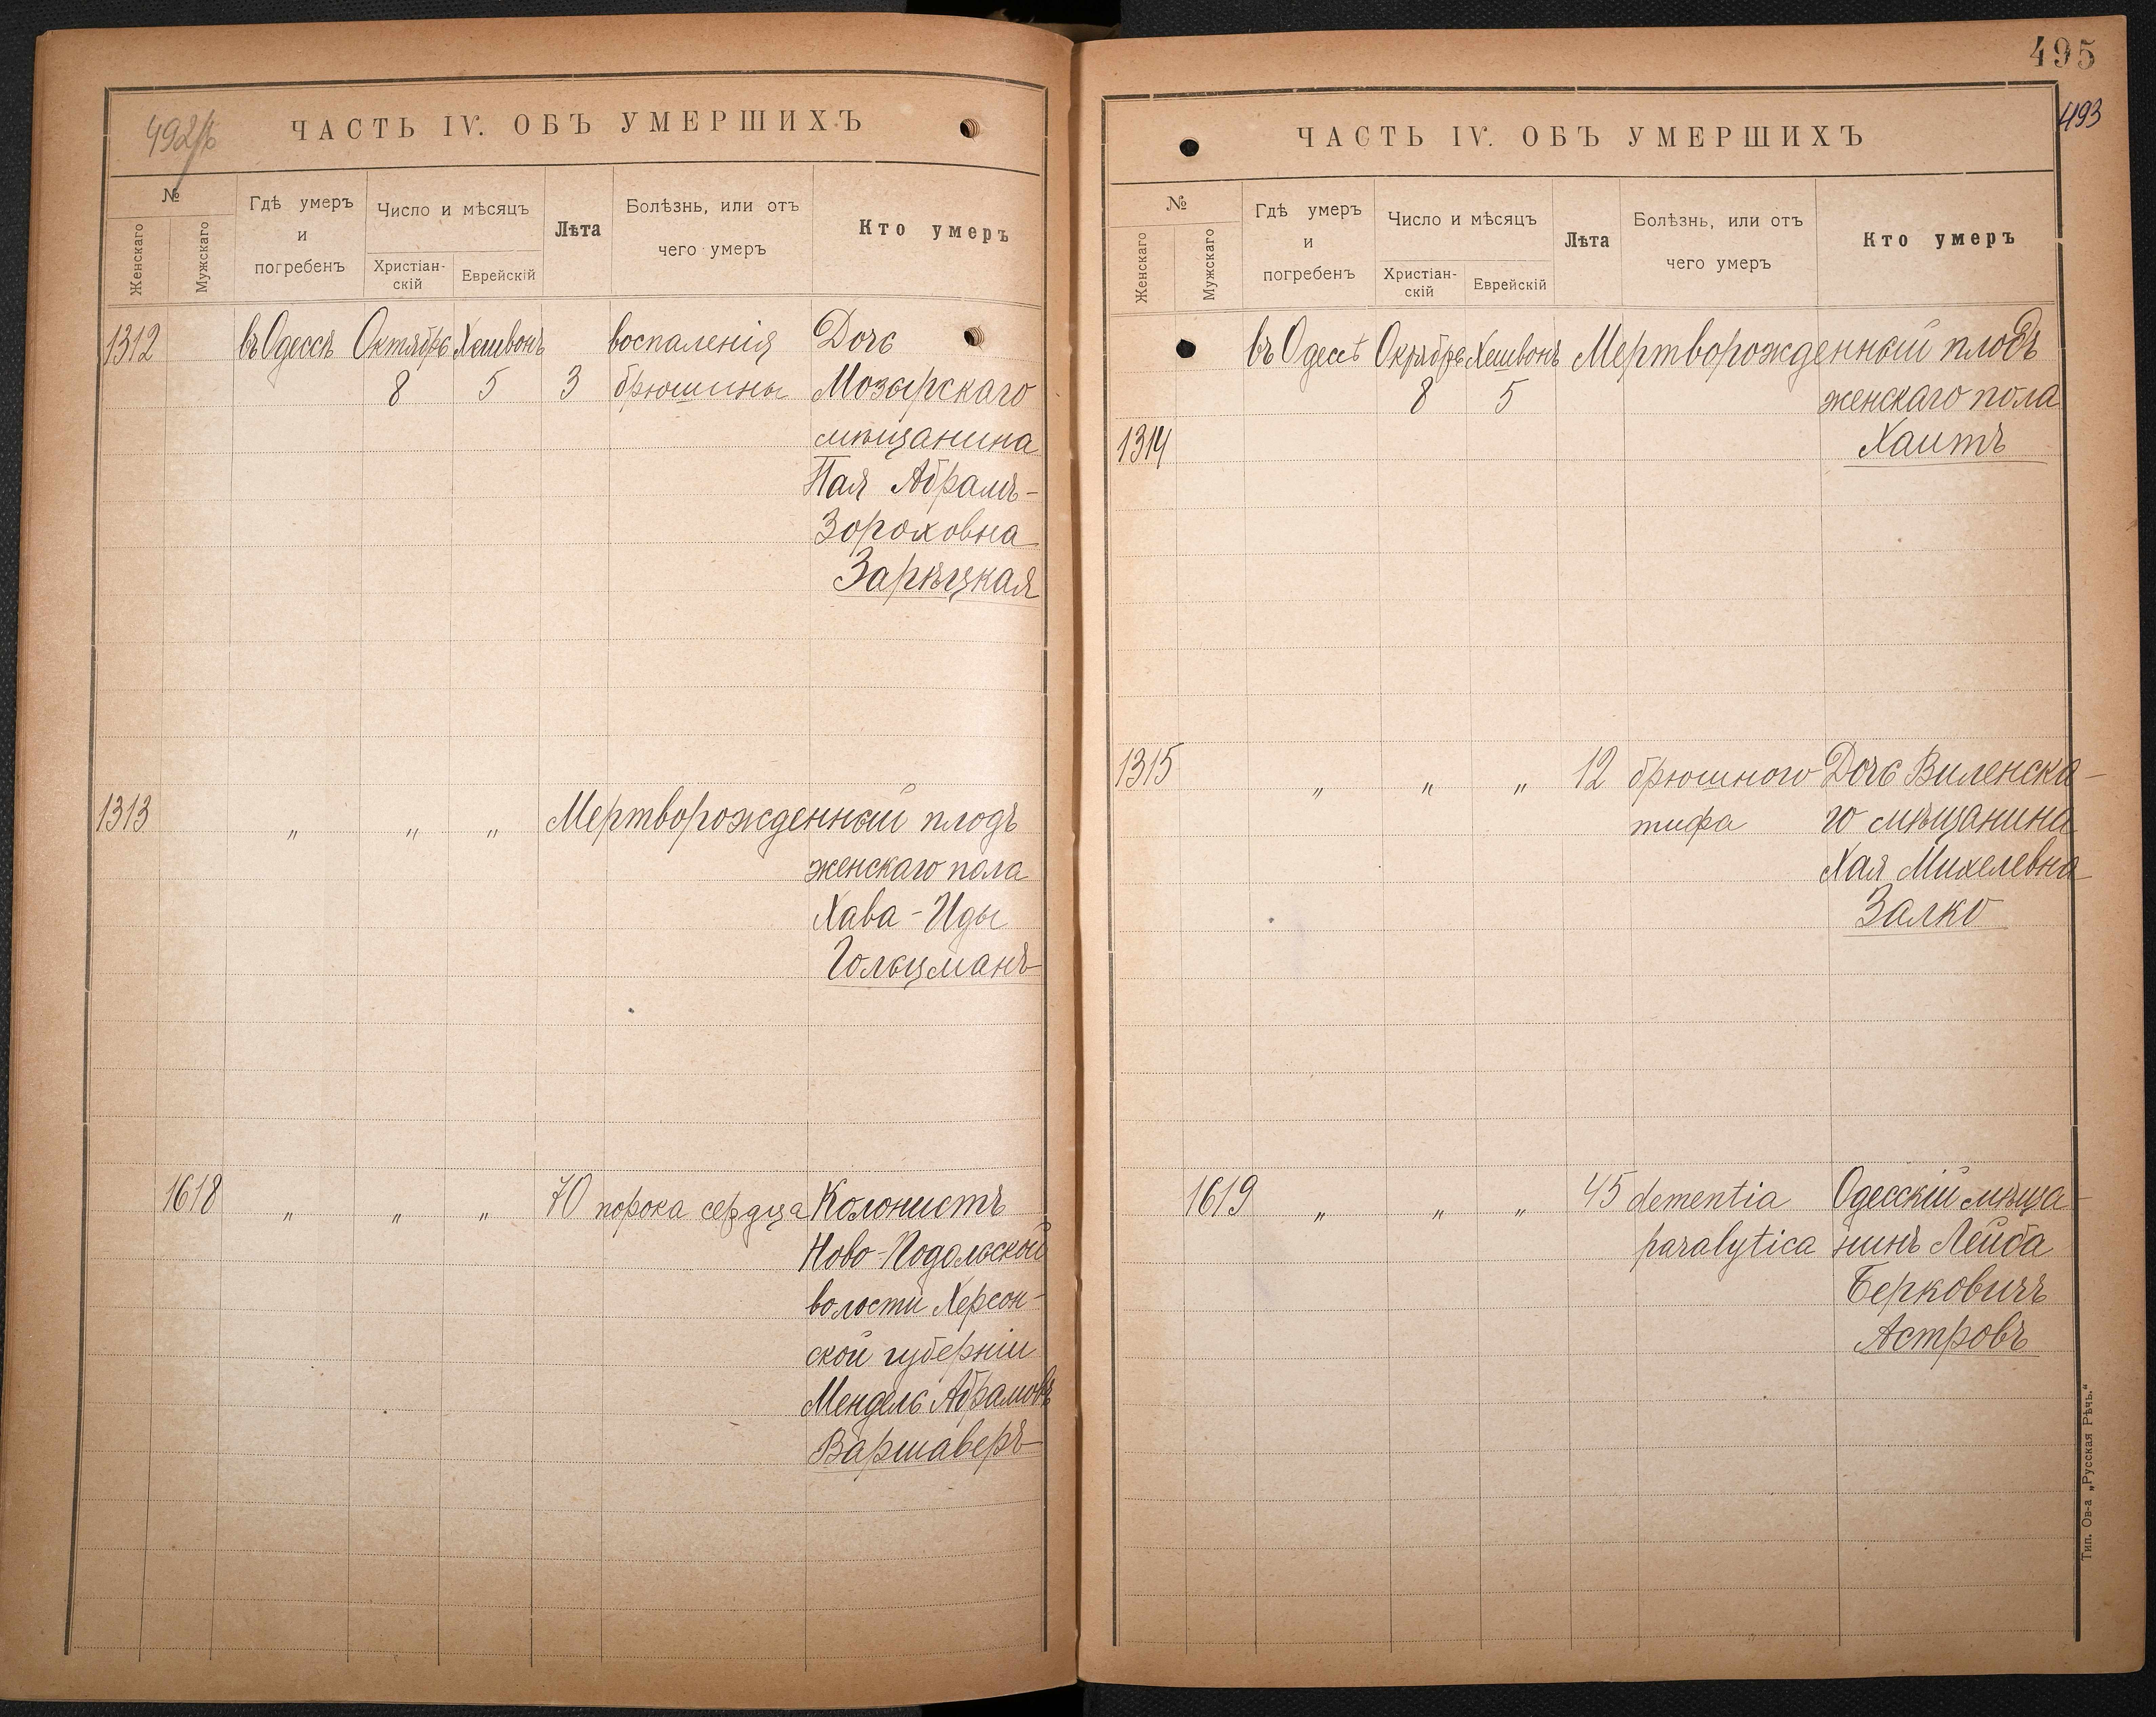 492/б
ЧАСТЬ IV. ОБЪ УМЕРШИХЪ
№
Женскаго
Мужскаго
Гдѣ умеръ
и
погребенъ
Число и мѣсяцъ
Христіан-
скій
Еврейскій
Лѣта
Болѣзнь, или отъ
чего умеръ
Кто умеръ
1312 въ Одессѣ Октябрь Хешвонъ воспаленія Дочь
8 5 3 брюшины Мозырскаго
мѣщанина
Пая Абрамъ-
Зороховна
Зарѣцкая
1313 " " " Мертворожденный плодъ
женскаго пола
Хава-Иды
Гольцманъ
1618 " " " 70 порока сердца Колонистъ
Ново-Подольской
волости Херсон-
ской губерніи
Мендель Абрамовъ
Варшаверъ
495
493
ЧАСТЬ IV. ОБЪ УМЕРШИХЪ
№
Женскаго
Мужскаго
Гдѣ умеръ
и
погребенъ
Число и мѣсяцъ
Христіан-
скій
Еврейскій
Лѣта
Болѣзнь, или отъ
чего умеръ
Кто умеръ
въ Одессѣ Октябрь Хешвонъ Мертворожденный плодъ
8 5 женскаго пола
1314 Хаитъ
1315 " " " 12 брюшного Дочь Виленска-
тифа го мѣщанина
Хая Михелевна
Залко
1619 " " " 45 dementia Одесскій мѣща-
paralytica нинъ Лейба
Берковичъ
Астровъ
Тип. Ов-а „Русская Рѣчь."